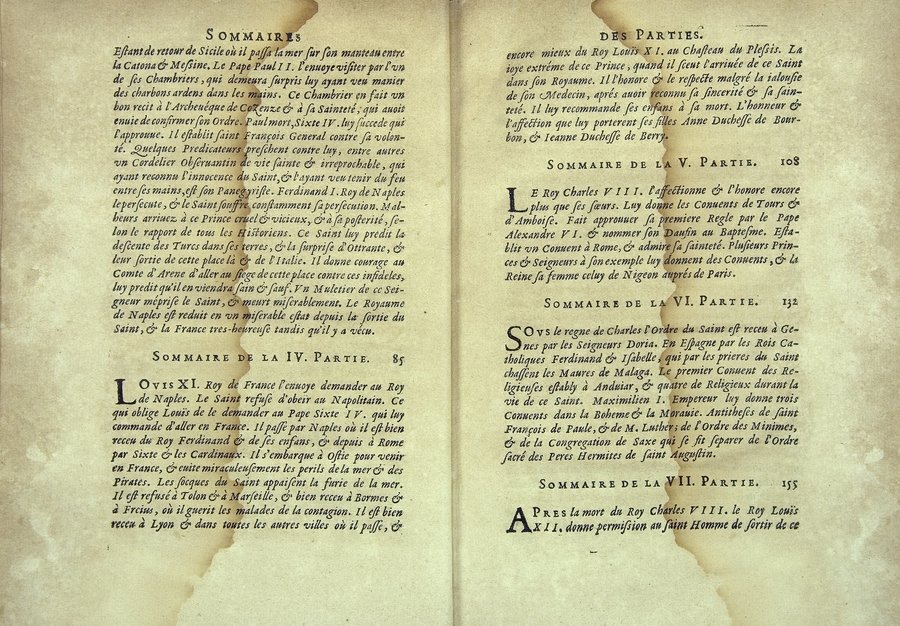 SOMMAIRES
Estant de retour de Sicile où il passa la mer sur son manteau entre
la Catona & Messine. Le Pape Paul II. l'enuoye visiter par l'vn
de ses Chambriers, qui demeura surpris luy ayant veu manier
des charbons ardens dans les mains. Ce Chambrier en fait vn
bon recit à l'Archeuéque de Cozenze & à sa Sainteté; qui auoit
enuie de confirmer son Ordre. Paul mort, Sixte IV. luy succede qui
l'approuue. Il establit saint François General contre sa volon-
té. Quelques Predicateurs preschent contre luy, entre autres
vn Cordelier Obseruantin de vie sainte & irreprochable, qui
ayant reconnu l'innocence du Saint, & l'ayant veu tenir du feu
entre ses mains, est son Panegyriste. Ferdinand I. Roy de Naples
le persecute, & le Saint souffre constamment sa persecution. Mal-
heurs arriuez à ce Prince cruel & vicieux, & à sa posterité, se-
lon le rapport de tous les Historiens. Ce Saint luy predit la
descente des Turcs dans ses terres, & la surprise d'Ottrante, &
leur sortie de cette place là & de l'Italie. Il donne courage au
Comte d'Arene d'aller au siege de cette place contre ces infideles,
luy predit qu'il en viendra sain & sauf. Vn Muletier de ce Sei-
gneur méprise le Saint, & meurt miserablement. Le Royaume
de Naples est reduit en vn miserable estat depuis la sortie du
Saint, & la France tres-heureuse tandis qu'il y a vécu.
SOMMAIRE DE LA IV. PARTIE. 85
LOVIS XI. Roy de France l'enuoye demander au Roy
de Naples. Le Saint refuse d'obeïr au Napolitain. Ce
qui oblige Louis de le demander au Pape Sixte IV. qui luy
commande d'aller en France. Il passe par Naples où il est bien
receu du Roy Ferdinand & de ses enfans, & depuis à Rome
par Sixte & les Cardinaux. Il s'embarque à Ostie pour venir
en France, & euite miraculeusement les perils de la mer & des
Pirates. Les socques du Saint appaisent la furie de la mer.
Il est refusé à Tolon & à Marseille, & bien receu à Bormes &
à Freius, où il guerit les malades de la contagion. Il est bien
receu à Lyon & dans toutes les autres villes où il passe, &
DES PARTIES.
encore mieux du Roy Louïs XI. au Chasteau du Plessis. La
ioye extréme de ce Prince, quand il sceut l'arriuée de ce Saint
dans son Royaume. Il l'honore & le respecte malgré la ialousie
de son Medecin, aprés auoir reconnu sa sincerité & sa sain-
teté. Il luy recommande ses enfans à sa mort. L'honneur &
l'affection que luy porterent ses filles Anne Duchesse de Bour-
bon, & Ieanne Duchesse de Berry.
SOMMAIRE DE LA V. PARTIE. 108
LE Roy Charles VIII. l'affectionne & l'honore encore
plus que ses sœurs. Luy donne les Conuents de Tours &
d'Amboise. Fait approuuer sa premiere Regle par le Pape
Alexandre VI. & nommer son Daufin au Baptesme. Esta-
blit vn Conuent à Rome, & admire sa sainteté. Plusieurs Prin-
ces & Seigneurs à son exemple luy donnent des Conuents, & la
Reine sa femme celuy de Nigeon auprés de Paris.
SOMMAIRE DE LA VI. PARTIE. 132
SOVS le regne de Charles l'Ordre du Saint est receu à Ge-
nes par les Seigneurs Doria. En Espagne par les Rois Ca-
tholiques Ferdinand & Isabelle, qui par les prieres du Saint
chassent les Maures de Malaga. Le premier Conuent des Re-
ligieuses estably à Anduiar, & quatre de Religieux durant la
vie de ce Saint. Maximilien I. Empereur luy donne trois
Conuents dans la Boheme & la Morauie. Antitheses de saint
François de Paule, & de M. Luther; de l'Ordre des Minimes,
& de la Congregation de Saxe qui se fit separer de l'Ordre
sacré des Peres Hermites de saint Augustin.
SOMMAIRE DE LA VII. PARTIE. 155
APRES la mort du Roy Charles VIII. le Roy Louïs
XII. donne permission au saint Homme de sortir de ce